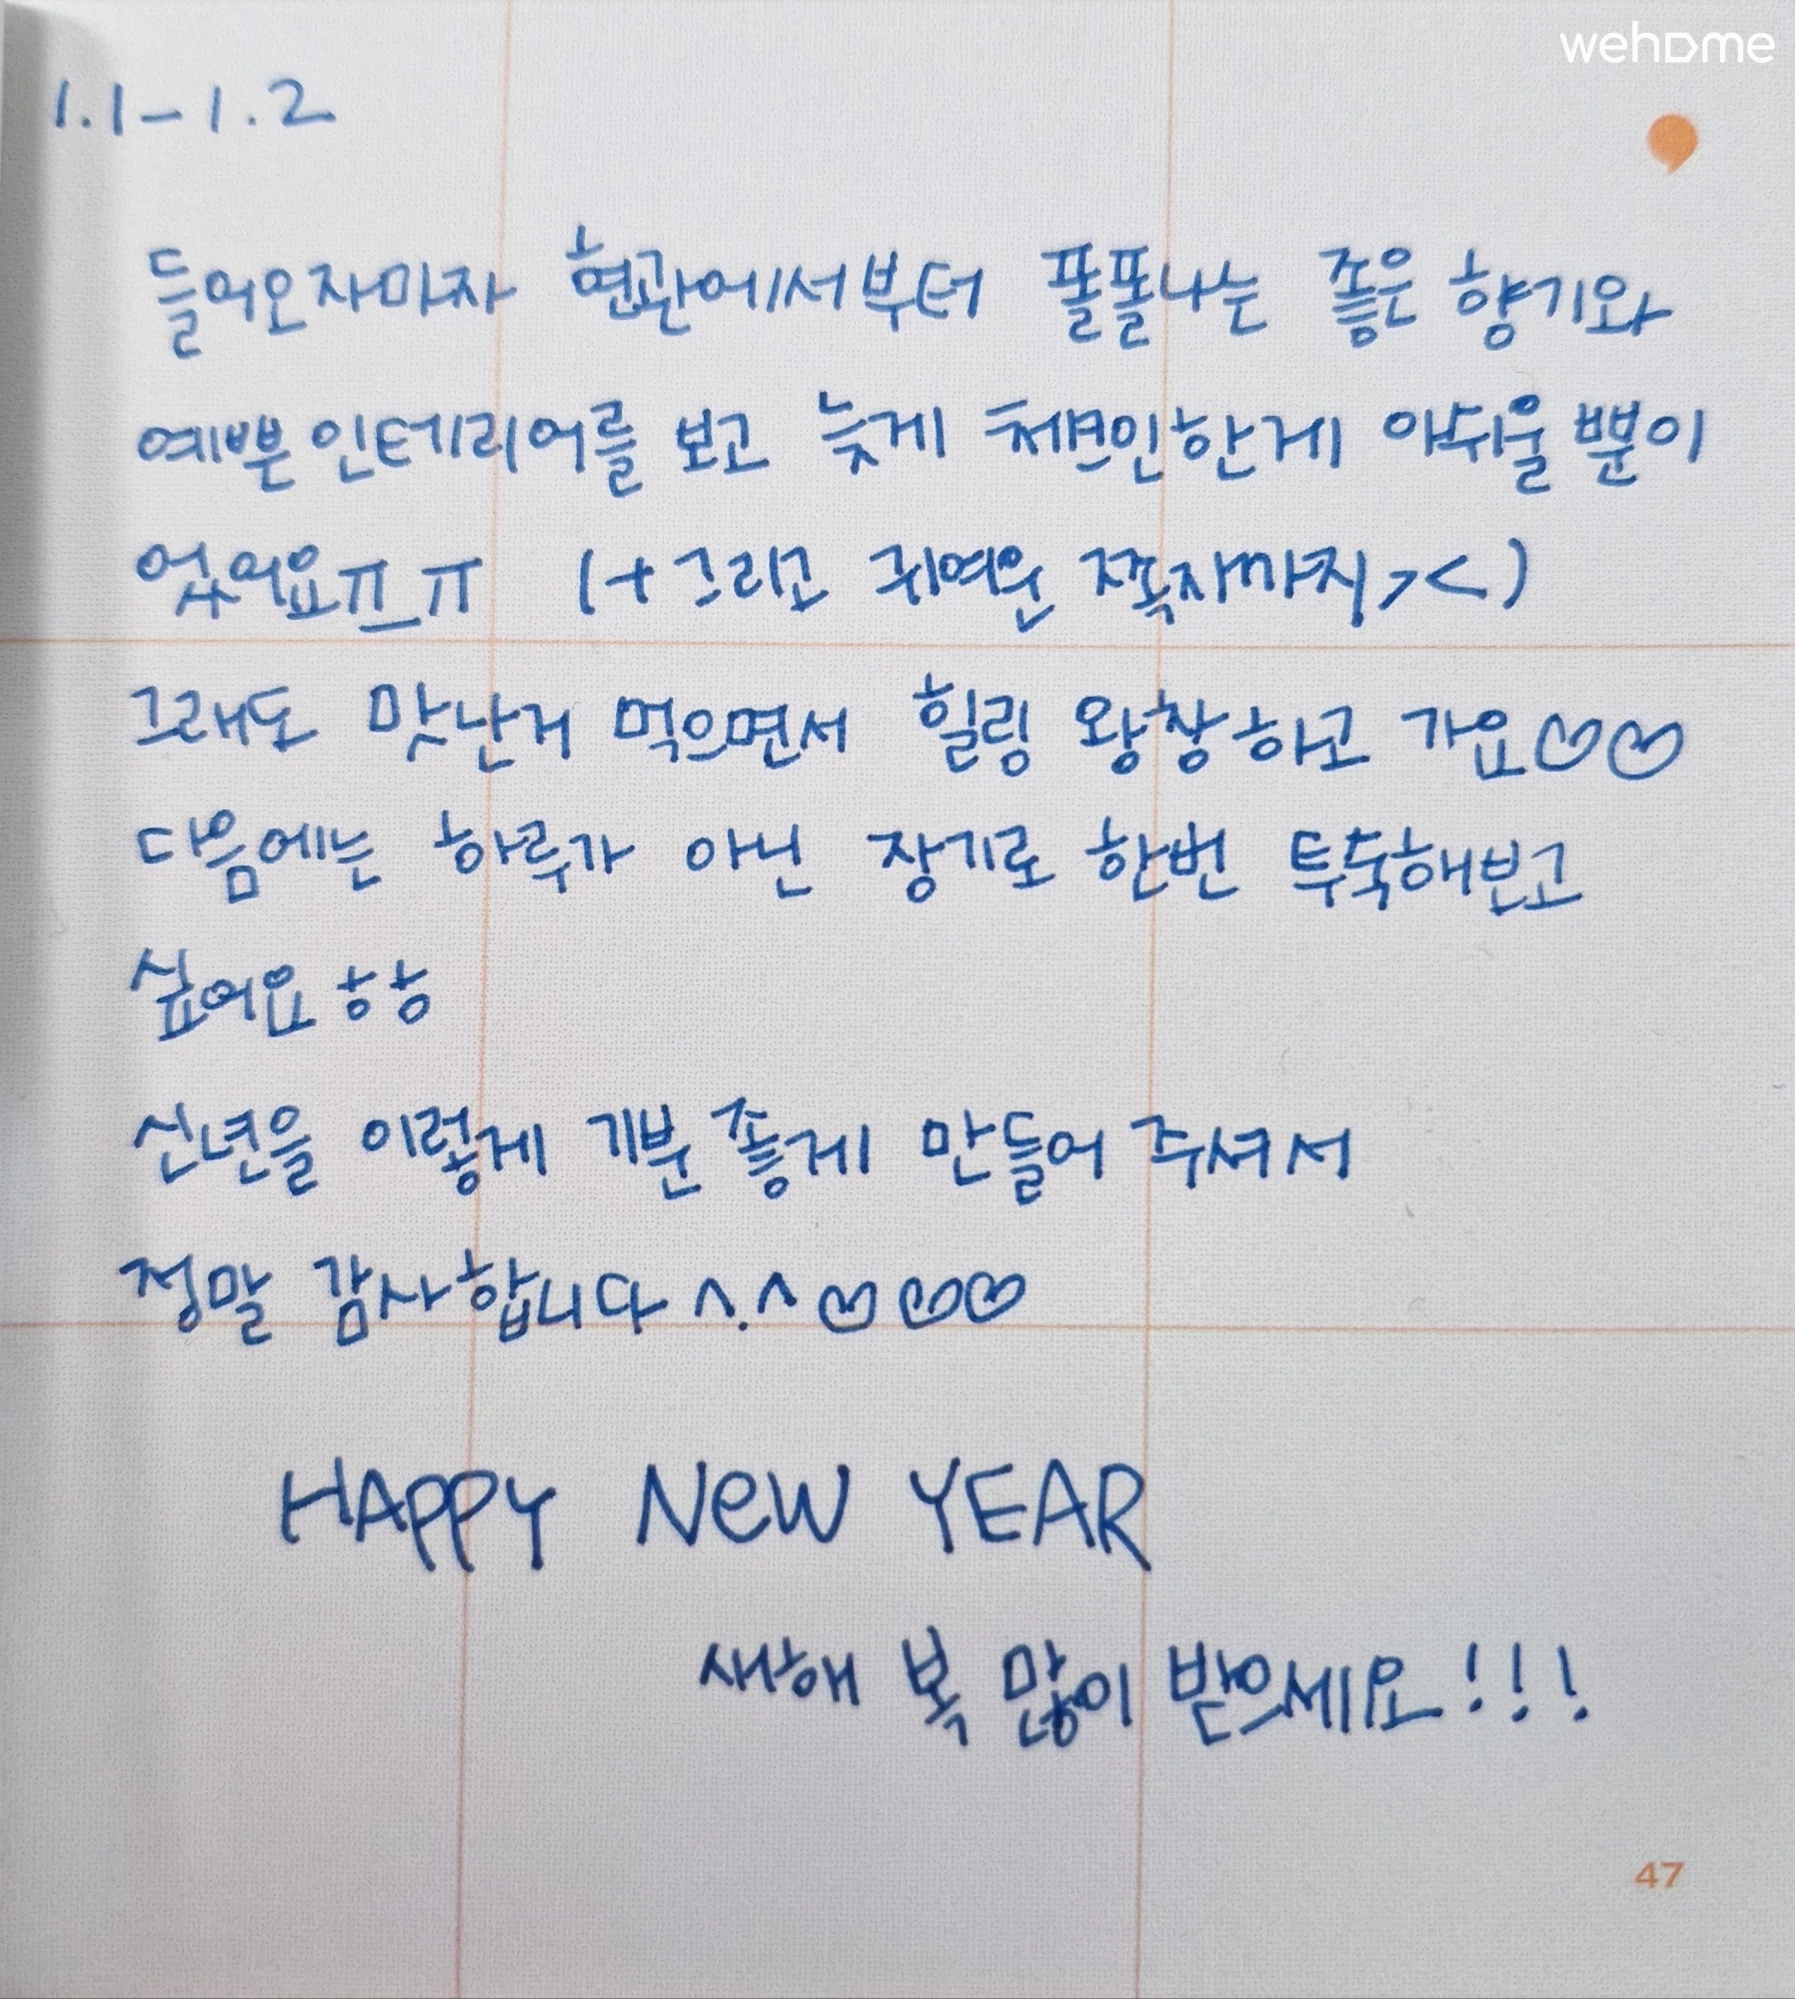 wehome
1.1-1.2
들어오자마자 현관에서부터 폴폴나는 좋은 향기와
예쁜 인테리어를 보고 늦게 체크인한게 아쉬울 뿐이
없어요ㅠ_ㅠ (+그리고 귀여운 쪽지까지><)
그래도 맛난거 먹으면서 힐링 왕창하고 가요♡♡
다음에는 하루가 아닌 장기로 한번 투숙해보고
싶어요ㅎㅎ
신년을 이렇게 기분 좋게 만들어 주셔서
정말 감사합니다^.^♡♡♡
HAPPY NeW YEAR
새해 복 많이 받으세요!!!
47